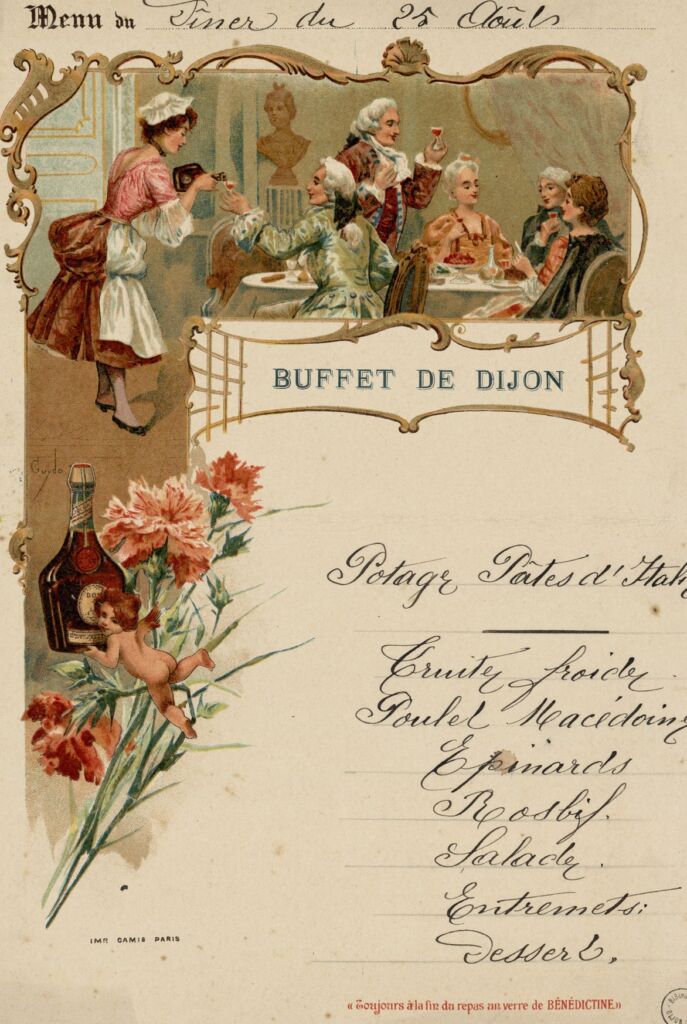 Menu du Dîner du 25 Août
BUFFET DE DIJON
Guydo
Potage Pâtes d'Ital
Truite froide.
Poulet Macédoine
Epinards
Rosbif.
Salade.
Entremets:
Dessert.
IMP. CAMIS PARIS
« Toujours à la fin du repas un verre de BÉNÉDICTINE »